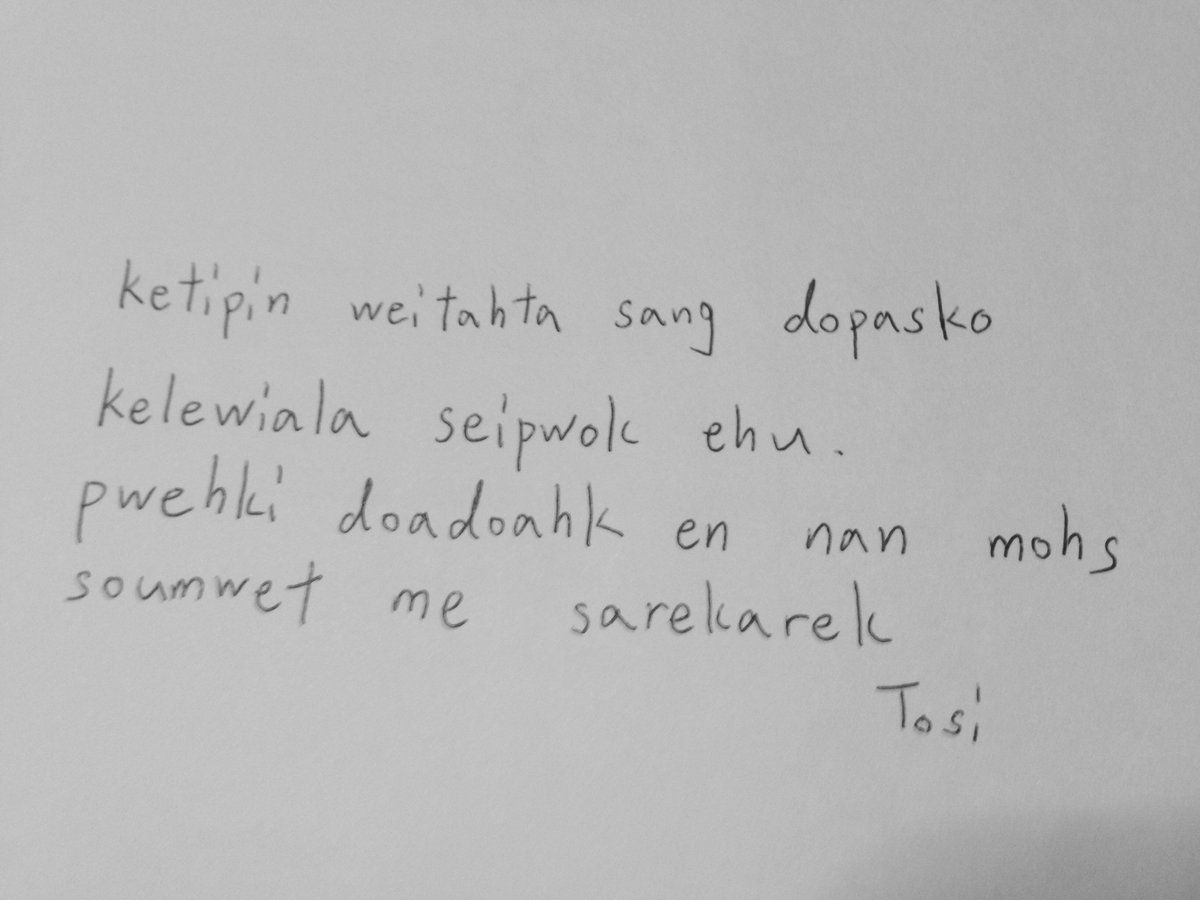 ketipin weitahta sang dopasko
kelewiala seipwok ehu.
pwehki doadoahk en nan mohs
soumwet me sarekarek
Tosi